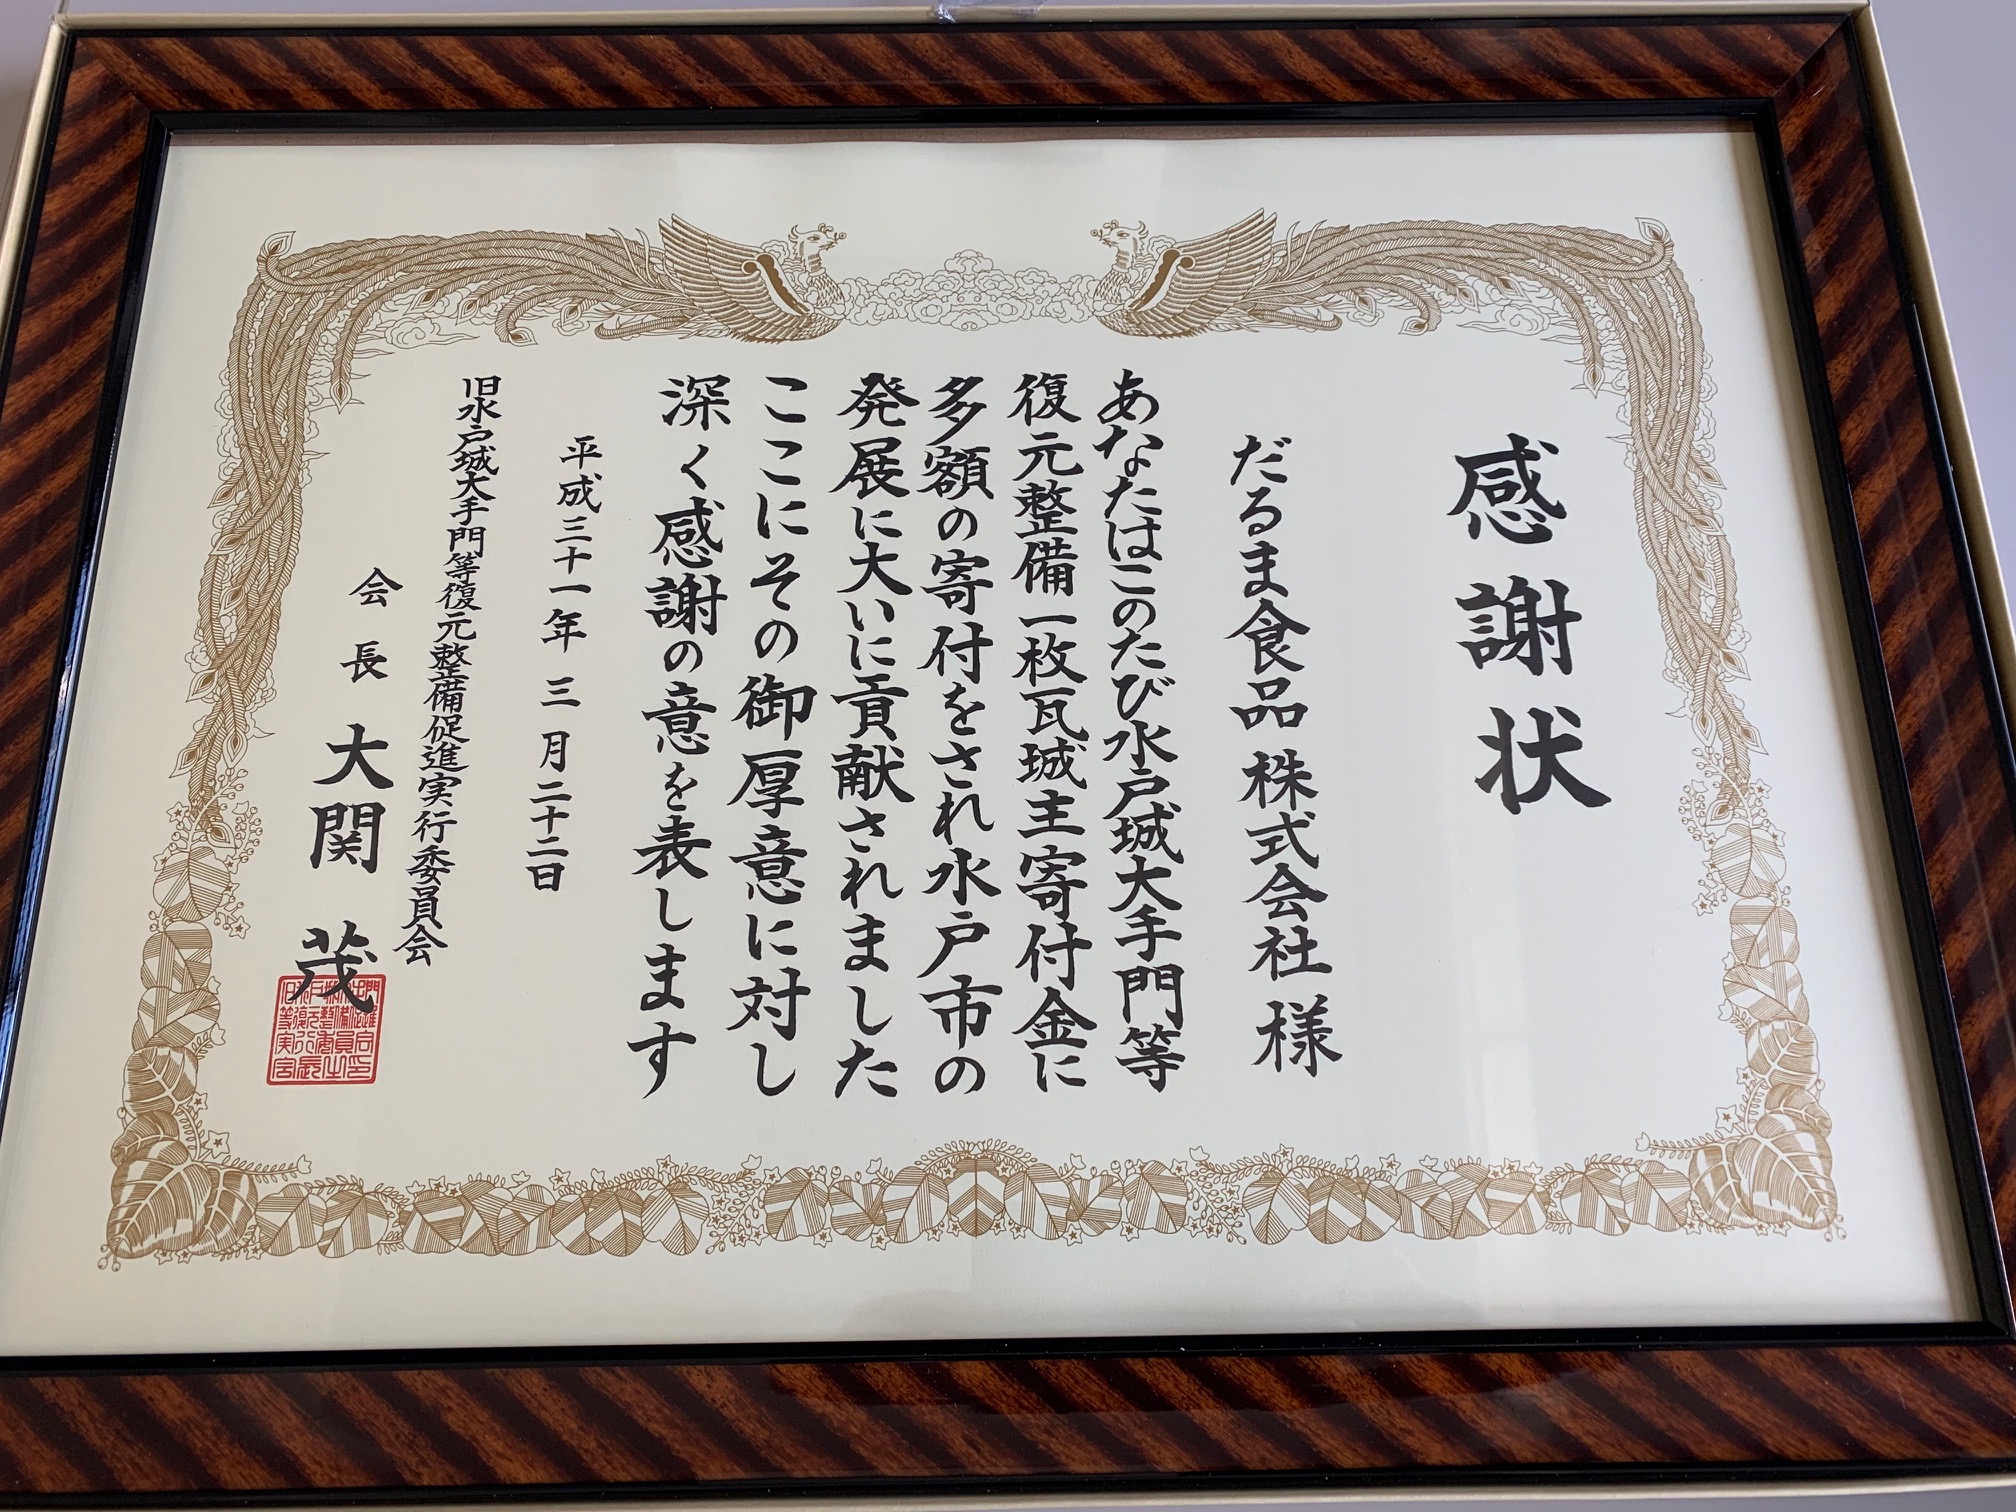 感謝状
だるま食品株式会社様
あなたはこのたび水戸城大手門等
復元整備一枚瓦城主寄付金に
多額の寄付をされ水戸市の
発展に大いに貢献されました
ここにその御厚意に対し
深く感謝の意を表します
平成三十一年三月二十二日
旧水戸城大手門等復元整備促進実行委員会
会長 大関 茂